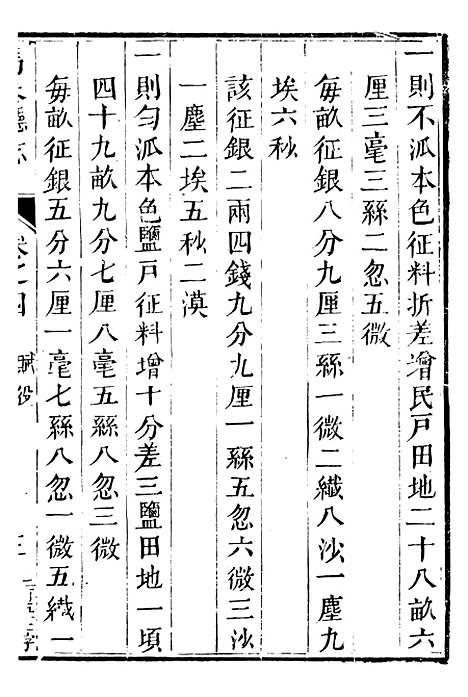 一則不派本色征料折差增民戸田地二十八畝六
厘三毫三絲二忽五微
每畝征銀八分九厘三絲一微二纎八沙一塵九
埃六秒
該征銀二兩四錢九分九厘一絲五忽六微三沙
一塵二埃五秒二漠
一則勻派本色鹽戸征料增十分差三鹽田地一頃
四十九畝九分七厘八毫五絲八忽三微
每畝征銀五分六厘一毫七絲八忽一微五纎一
廳志
卷之四
賦役